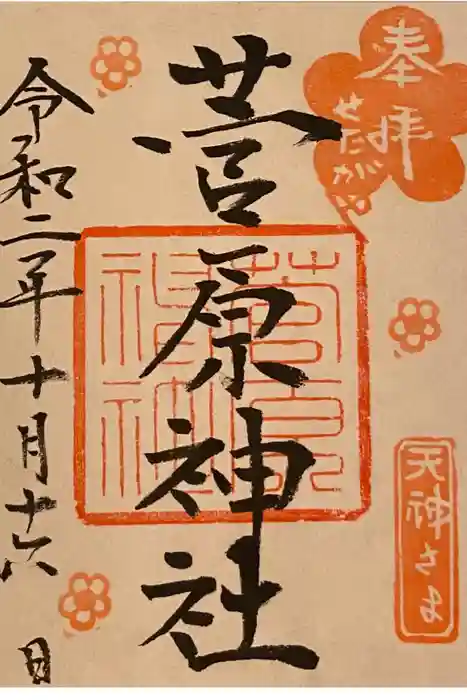 奉拝
せたがや
天神さま
菅原神社
令和二年十月十六日